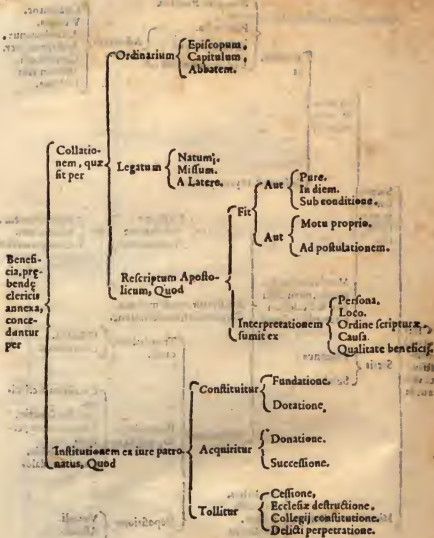 Benefi-
cia, prę-
bendę
clericis
annexa,
conce-
duntur
per
Collatio-
nem, quæ
fit per
Ordinarium
Epiſcopum.
Capitulum,
Abbatem.
Legatum
Natum;.
Miſſum.
A Latere.
Reſcriptum Apoſto-
licum, Quod
Fit
Aut
Pure.
In diem.
Sub conditione.
Aut
Motu proprio.
Ad poſtulationem.
Interpretationem
ſumit ex
Perſona.
Loco.
Ordine ſcripturæ.
Cauſa.
Qualitate beneficij.
Inſtitutionem ex iure patro
natus, Quod
Conſtituitur
Fundatione.
Dotatione,
Acquiritur
Donatione.
Succeſſione.
Tollitur
Ceſſione,
Eccleſiæ deſtructione.
Collegij conſtitutione.
Delicti perpetratione.